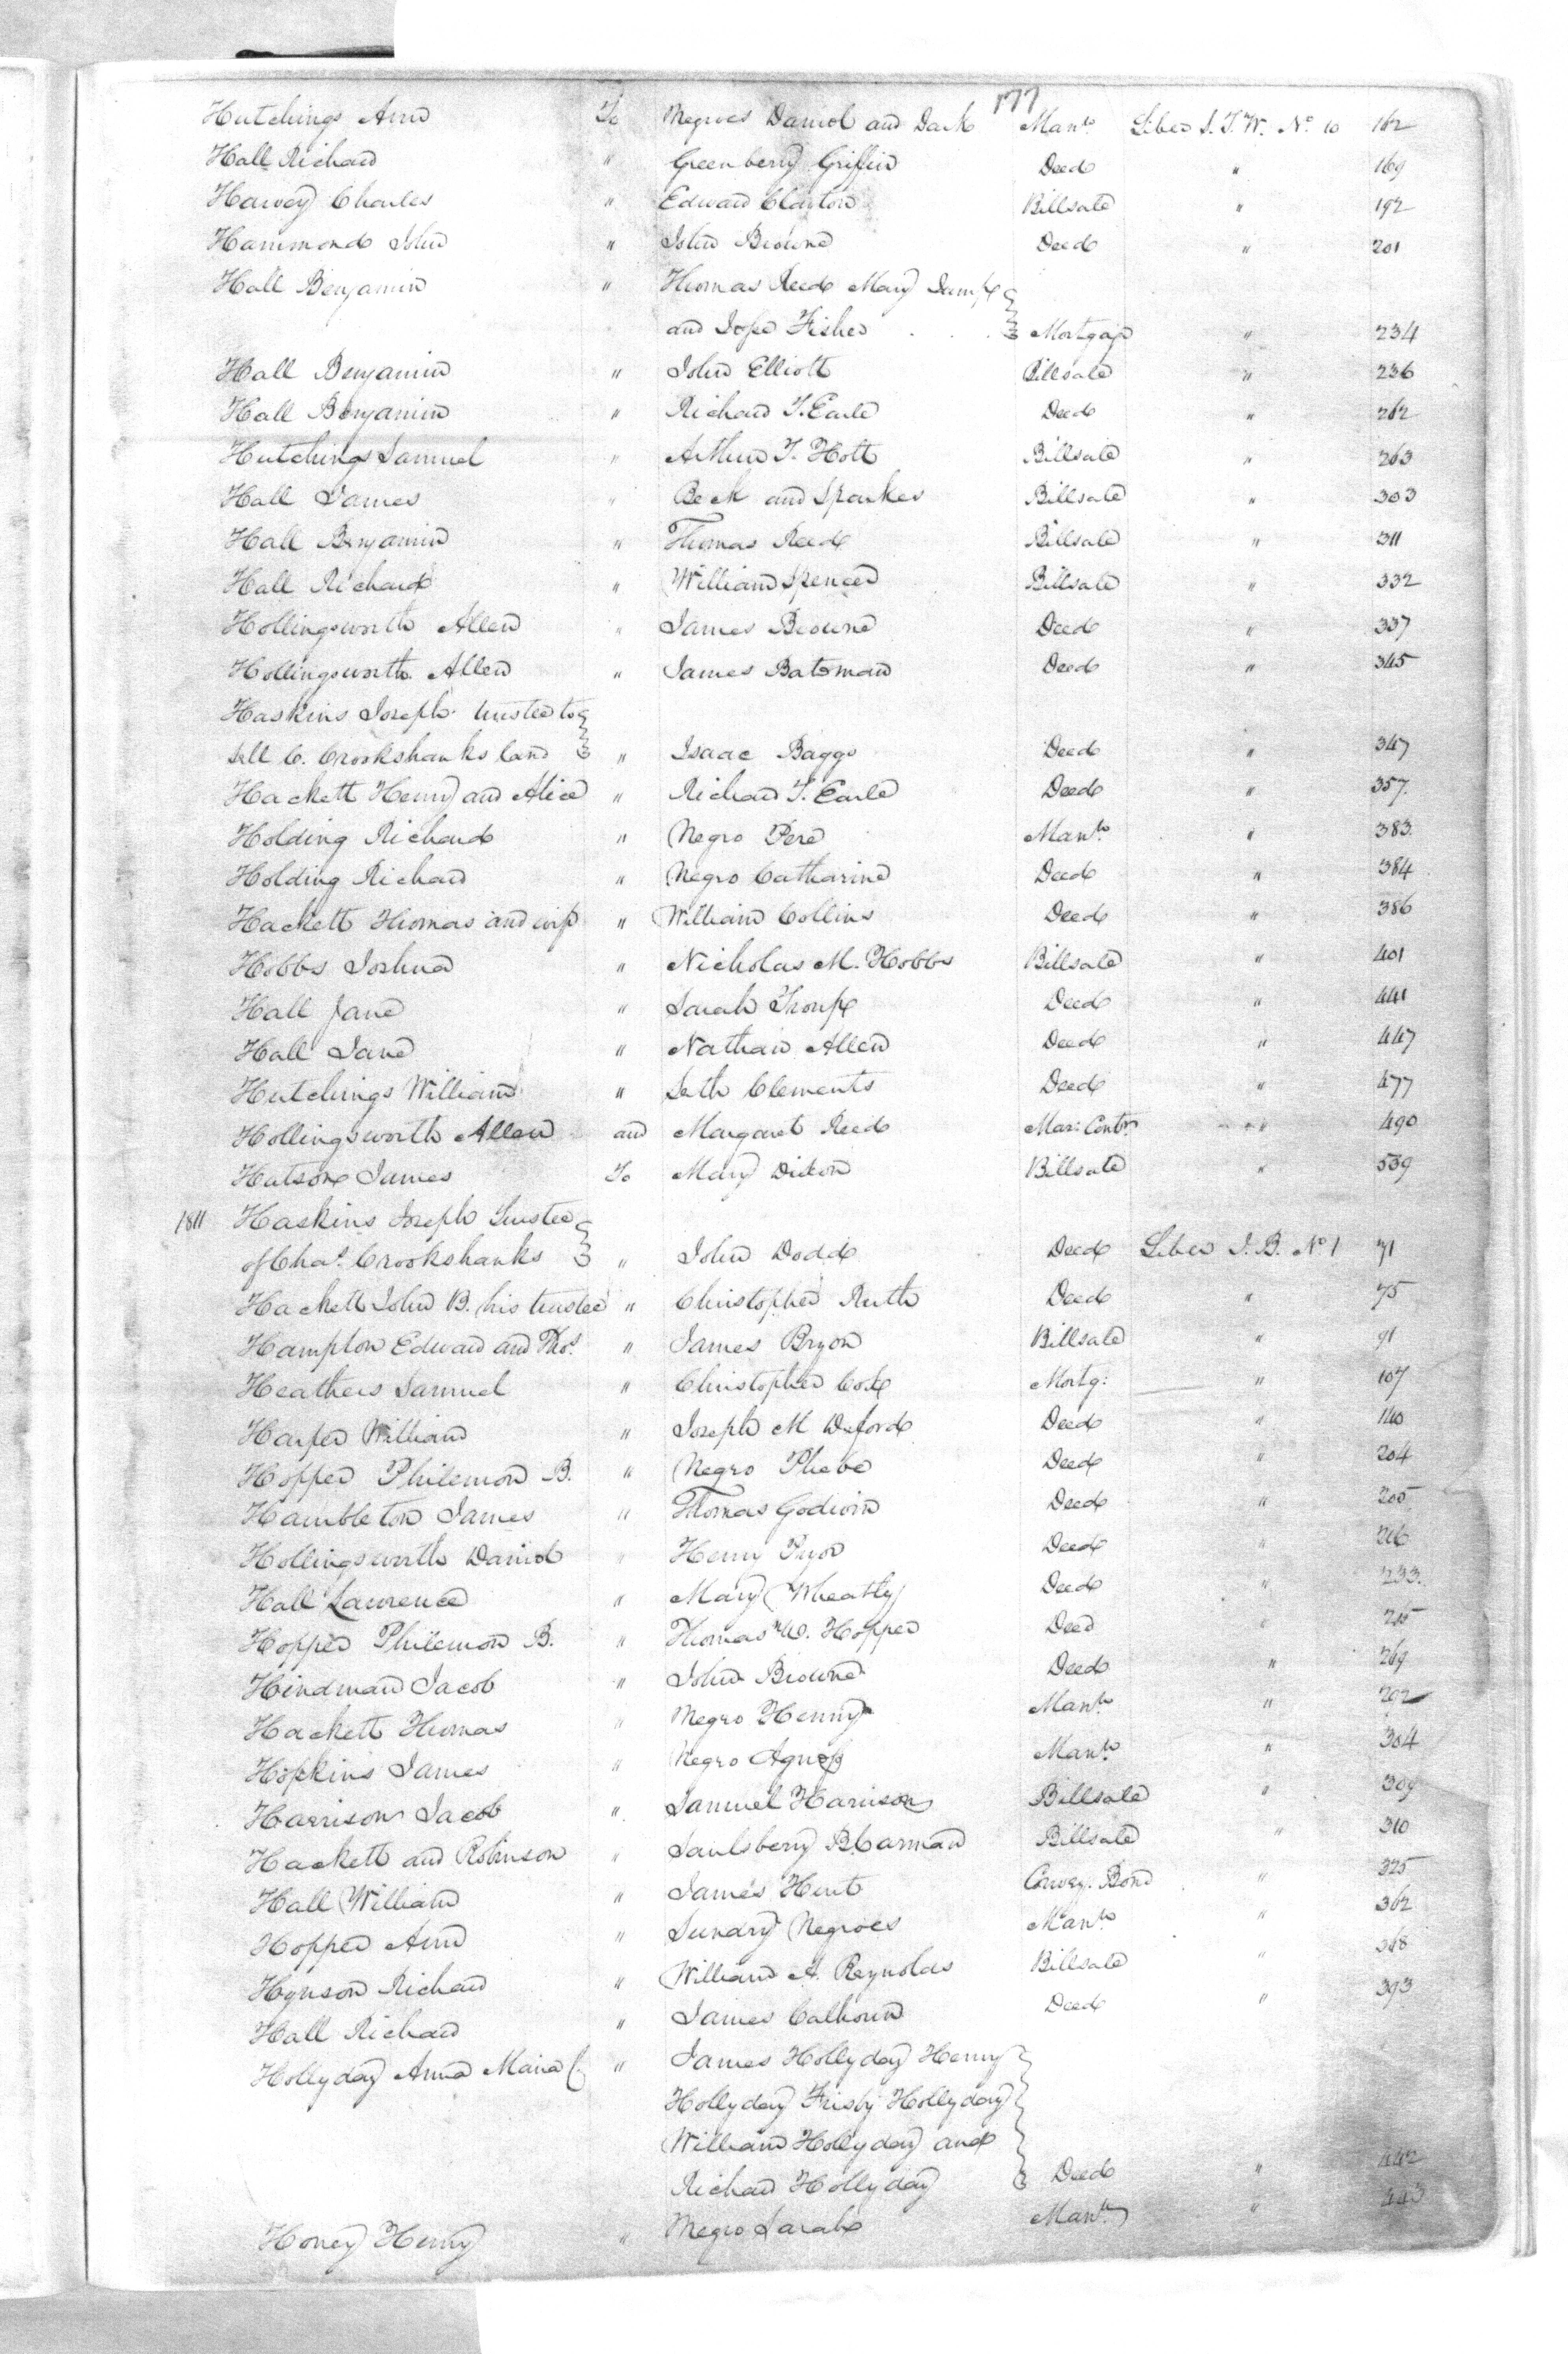 177
Hutchings Ann To Negroes Daniel and Jack Man.ⁿ Liber S.T.W. No. 10 162
Hall Richard " Greenberry Griffin Deed " 169
Harvey Charles " Edward Clayton Billsale " 192
Hammond John " John Browne Deed " 201
Hall Benjamin " Thomas Reed Mary Jump
and Jesse Fisher Mortgage " 234
Hall Benjamin " John Elliott Billsale " 236
Hall Benjamin " Richard T. Earle Deed " 262
Hutchings Samuel " Arthur T. Holt Billsale " 263
Hall James " Beck and Sparkes Billsale " 303
Hall Benjamin " Thomas Reed Billsale " 311
Hall Richard " William Spencer Billsale " 332
Hollingsworth Allen " James Browne Deed " 337
Hollingsworth Allen " James Bateman Deed " 345
Haskins Joseph trustee to
sell C. Crookshanks land " Isaac Baggs Deed " 347
Hackett Henry and Alice " Richard T. Earle Deed " 357
Holding Richard " Negro Pere Man.ⁿ " 383
Holding Richard " Negro Catharine Deed " 384
Hackett Thomas and wife " William Collins Deed " 386
Hobbs Joshua " Nicholas M. Hobbs Billsale " 401
Hall Jane " Sarah Thomp Deed " 441
Hall Jane " Nathan Allen Deed " 447
Hutchings William " Seth Clements Deed " 477
Hollingsworth Allen and Margaret Reed Mar: Contr. " 490
Hutson James To Mary Dixon Billsale " 539
1811 Haskins Joseph Trustee
of Chas. Crookshanks " John Dodd Deed Liber J.B. No 1 71
Hackett John B. his trustee " Christopher Ruth Deed " 75
Hampton Edward and Thos. " James Bryon Billsale " 91
Heathers Samuel " Christopher Cox Mortg: " 107
Harper William " Joseph M Deford Deed " 140
Hopper Philemon B. " Negro Phebe Deed " 204
Hambleton James " Thomas Godwin Deed " 205
Hollingsworth Daniel " Henry Pryor Deed " 216
Hall Lawrence " Mary Wheatly Deed " 233
Hopper Philemon B. " Thomas W. Hopper Deed "
Hindman Jacob " John Browne Deed " 269
Hackett Thomas " Negro Henny Man.ⁿ " 292
Hopkins James " Negro Agness Man.ⁿ " 304
Harrison Jacob " Samuel Harrison Billsale " 309
Hackett and Robinson " Saulsberry B Carman Billsale " 310
Hall William " James Hunt Convey. Bond " 325
Hopper Ann " Sundry Negroes Man.ⁿ " 362
Hynson Richard " William A. Reynolds Billsale " 368
Hall Richard " James Calhoun Deed " 393
Hollyday Anna Maria " James Hollyday Henry
Hollyday Frisby Hollyday
William Hollyday and
Richard Hollyday Deed " 442
Honey Henry " Negro Sarah Man.ⁿ " 443